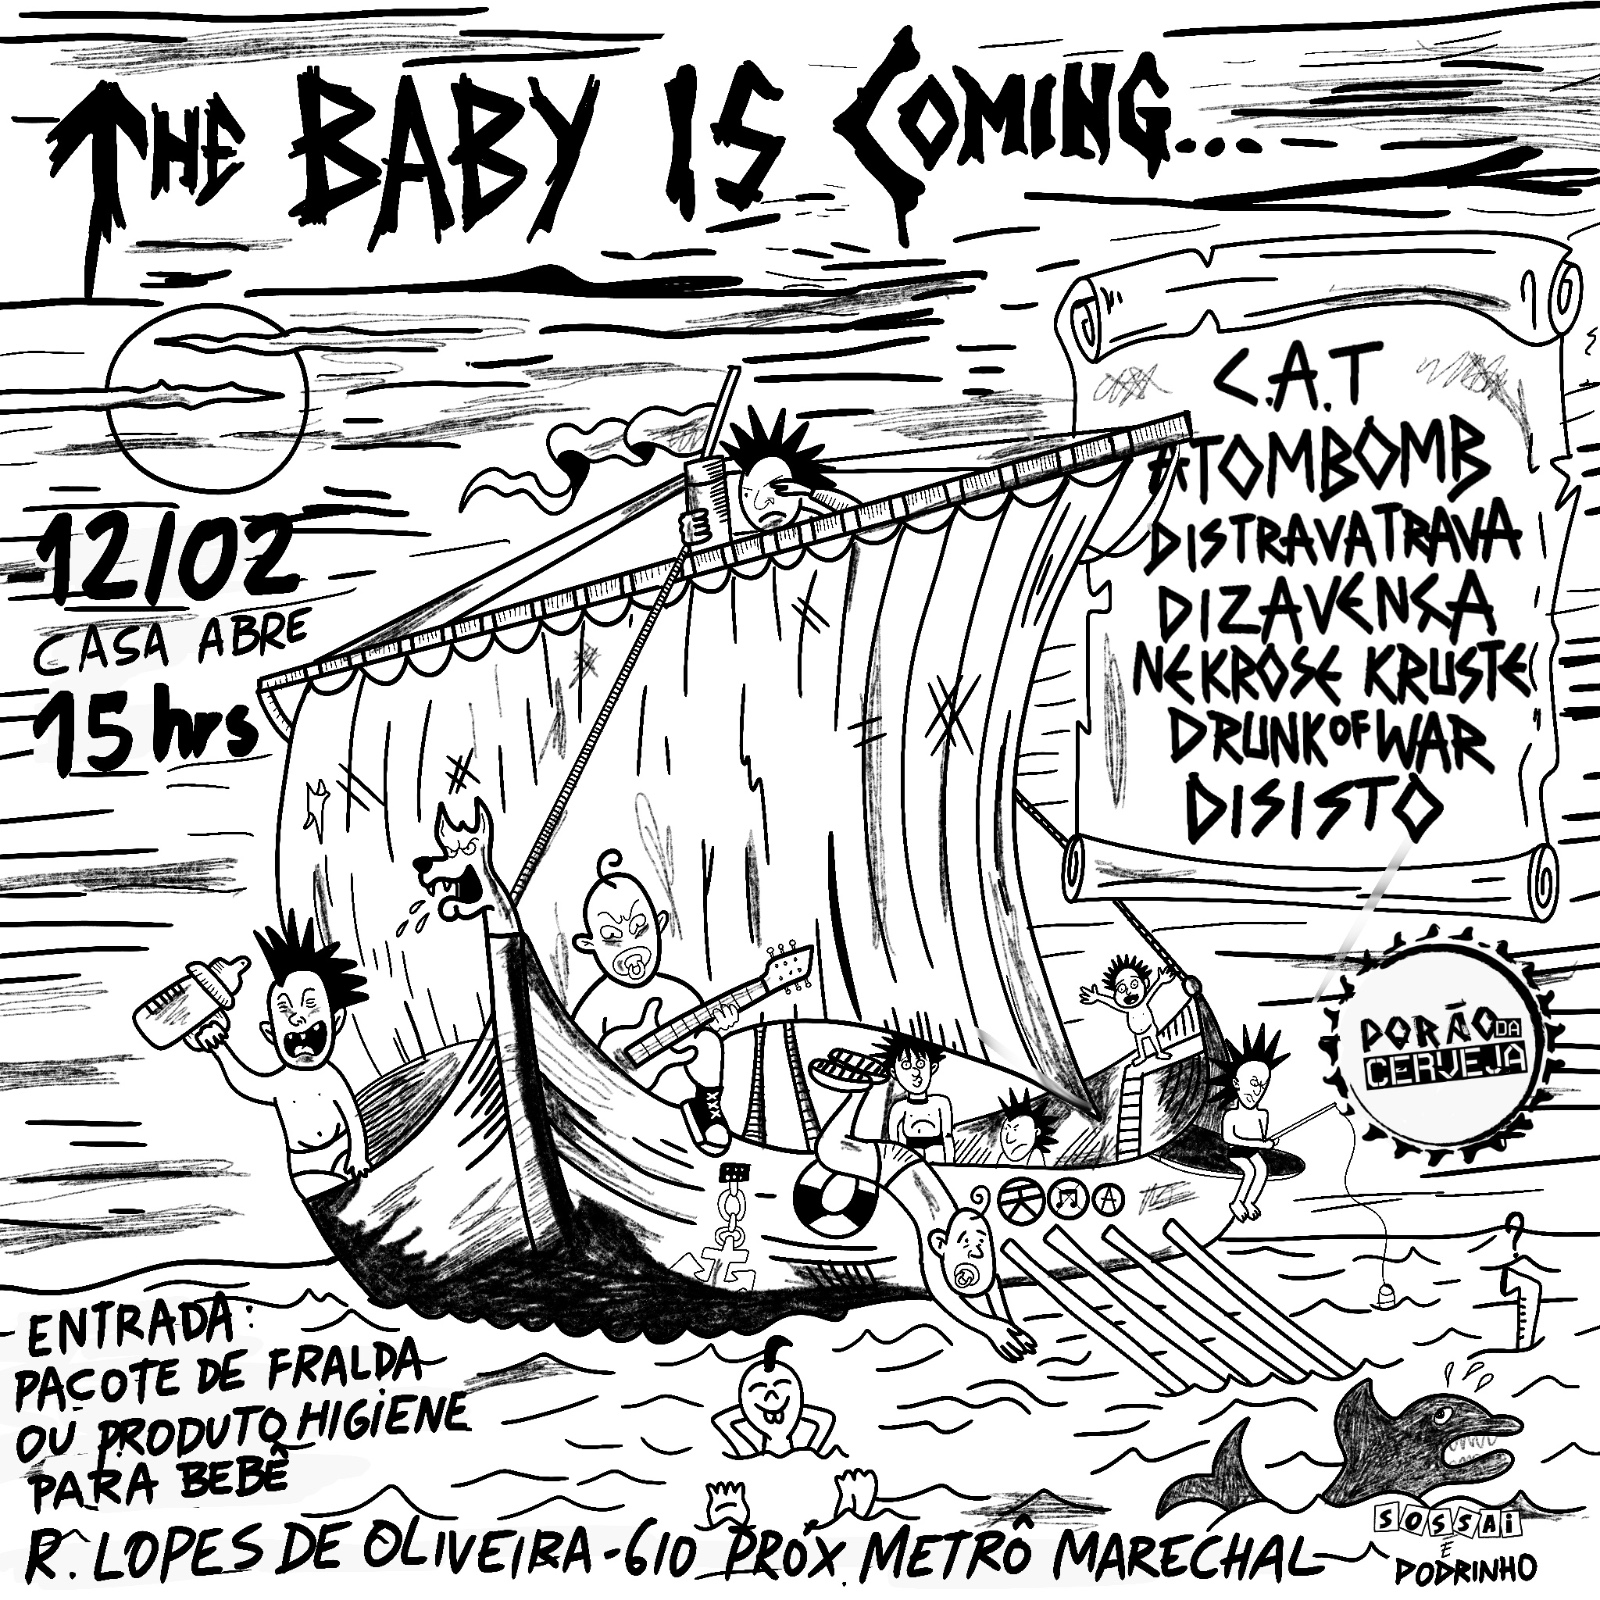 THE BABY IS COMING...
C.A.T
ATOMBOMB
DISTRAVATRAVA
DIZAVENÇA
NEKROSE KRUSTE
DRUNK OF WAR
DISISTO
12/02
CASA ABRE
15 hrs
PORÃO DA
CERVEJA
ENTRADA:
PACOTE DE FRALDA
OU PRODUTO HIGIENE
PARA BEBÊ
R. LOPES DE OLIVEIRA - 610 PRÓX METRÔ MARECHAL
SOSSAI
E
PODRINHO